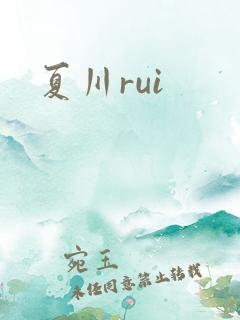 夏川rui
宛玉
未经同意禁止转载